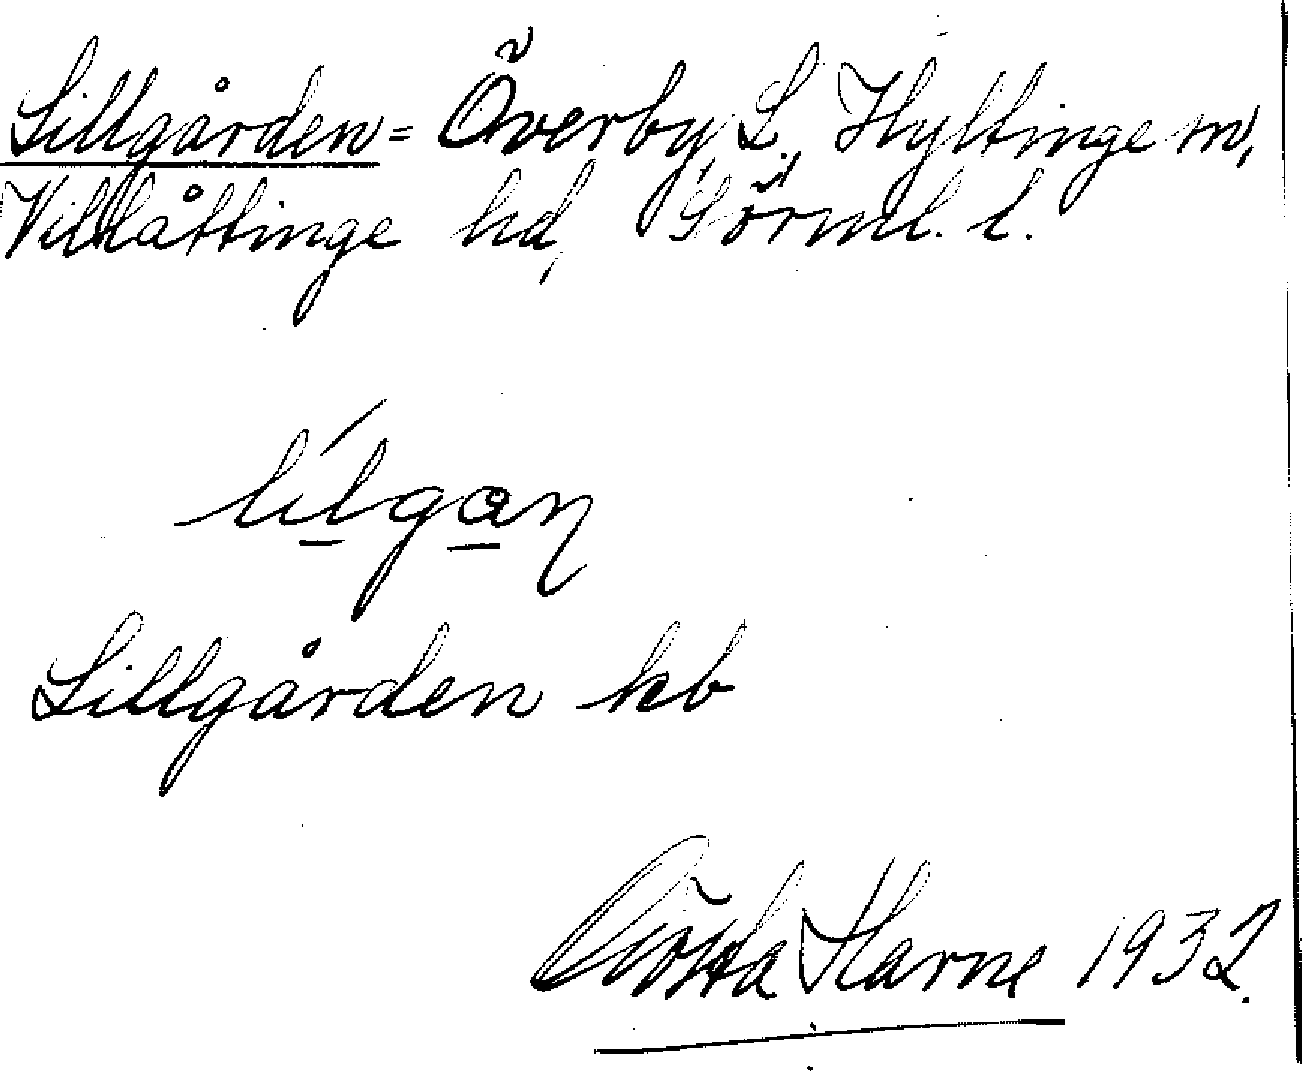 Lillgården = Överby, L. Hyltinge sn,
Villåttinge hd, Sörml. l.
lílgan
Lillgården kb
Gösta Harne 1932.